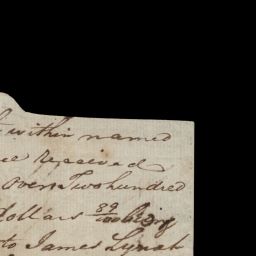 within named
received
over Two hundred
dollars 89/100 being
to James Lynah